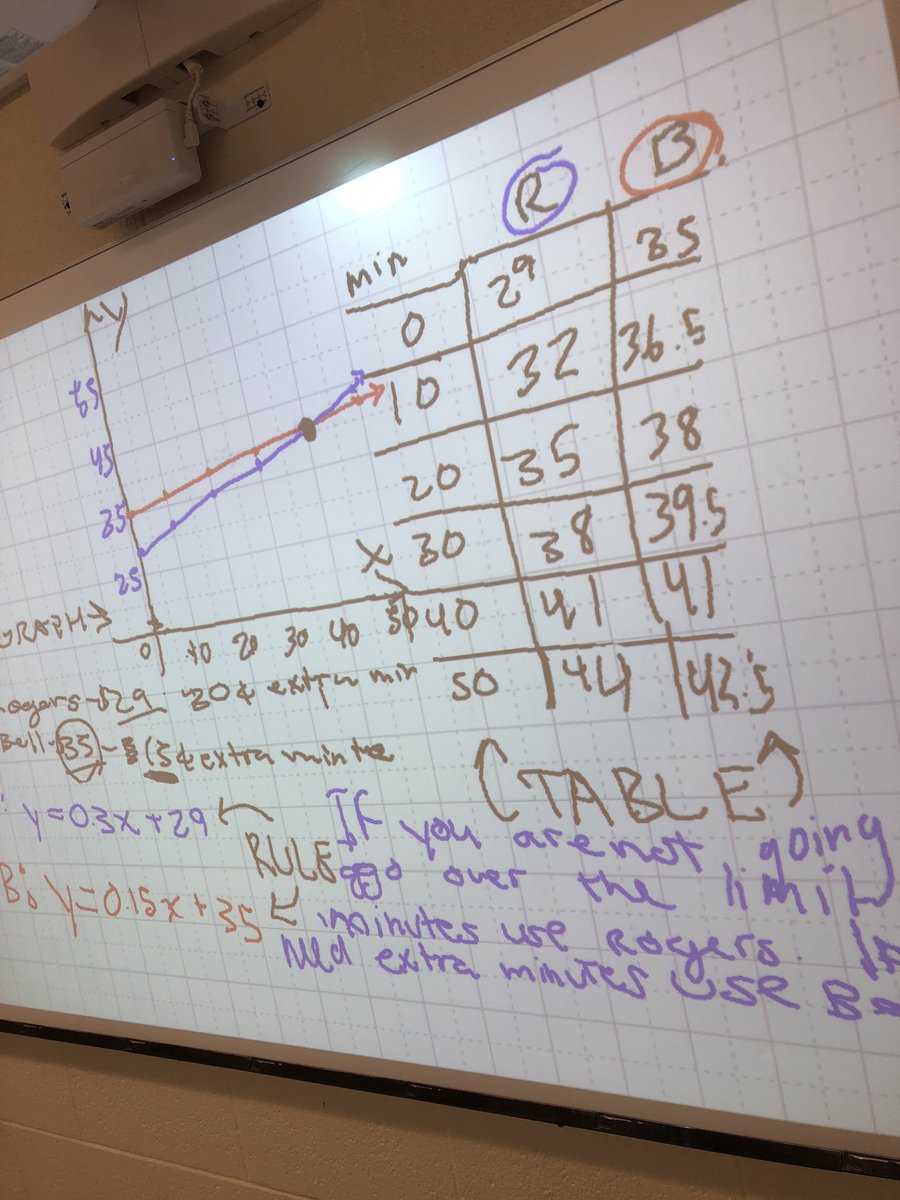 y
55
45
35
25
GRAPH→
0 10 20 30 40 50
x
min R B
0 29 35
10 32 36.5
20 35 38
30 38 39.5
40 41 41
50 44 42.5
(TABLE)
ogers - $29 30¢ extra min
Bell - $35 - 15¢ extra minute
y=0.3x+29
RULE
B: y=0.15x+35
If you are not going
go over the limit
minutes use Rogers. If
need extra minutes use Be